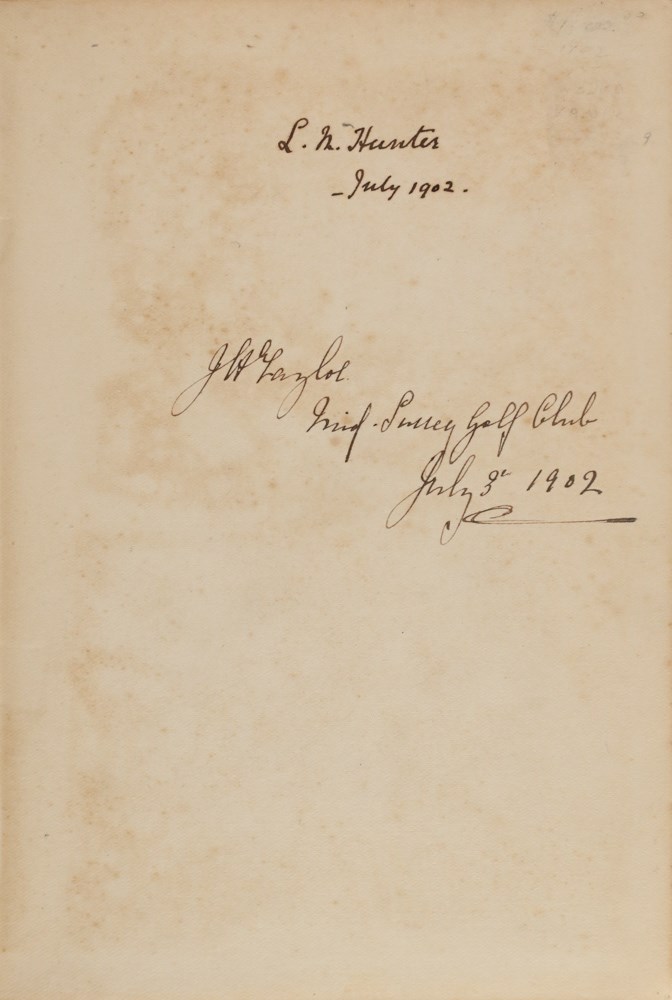 L. M. Hunter
- July 1902.
JH Taylor
Mid-Surrey Golf Club
July 3r 1902